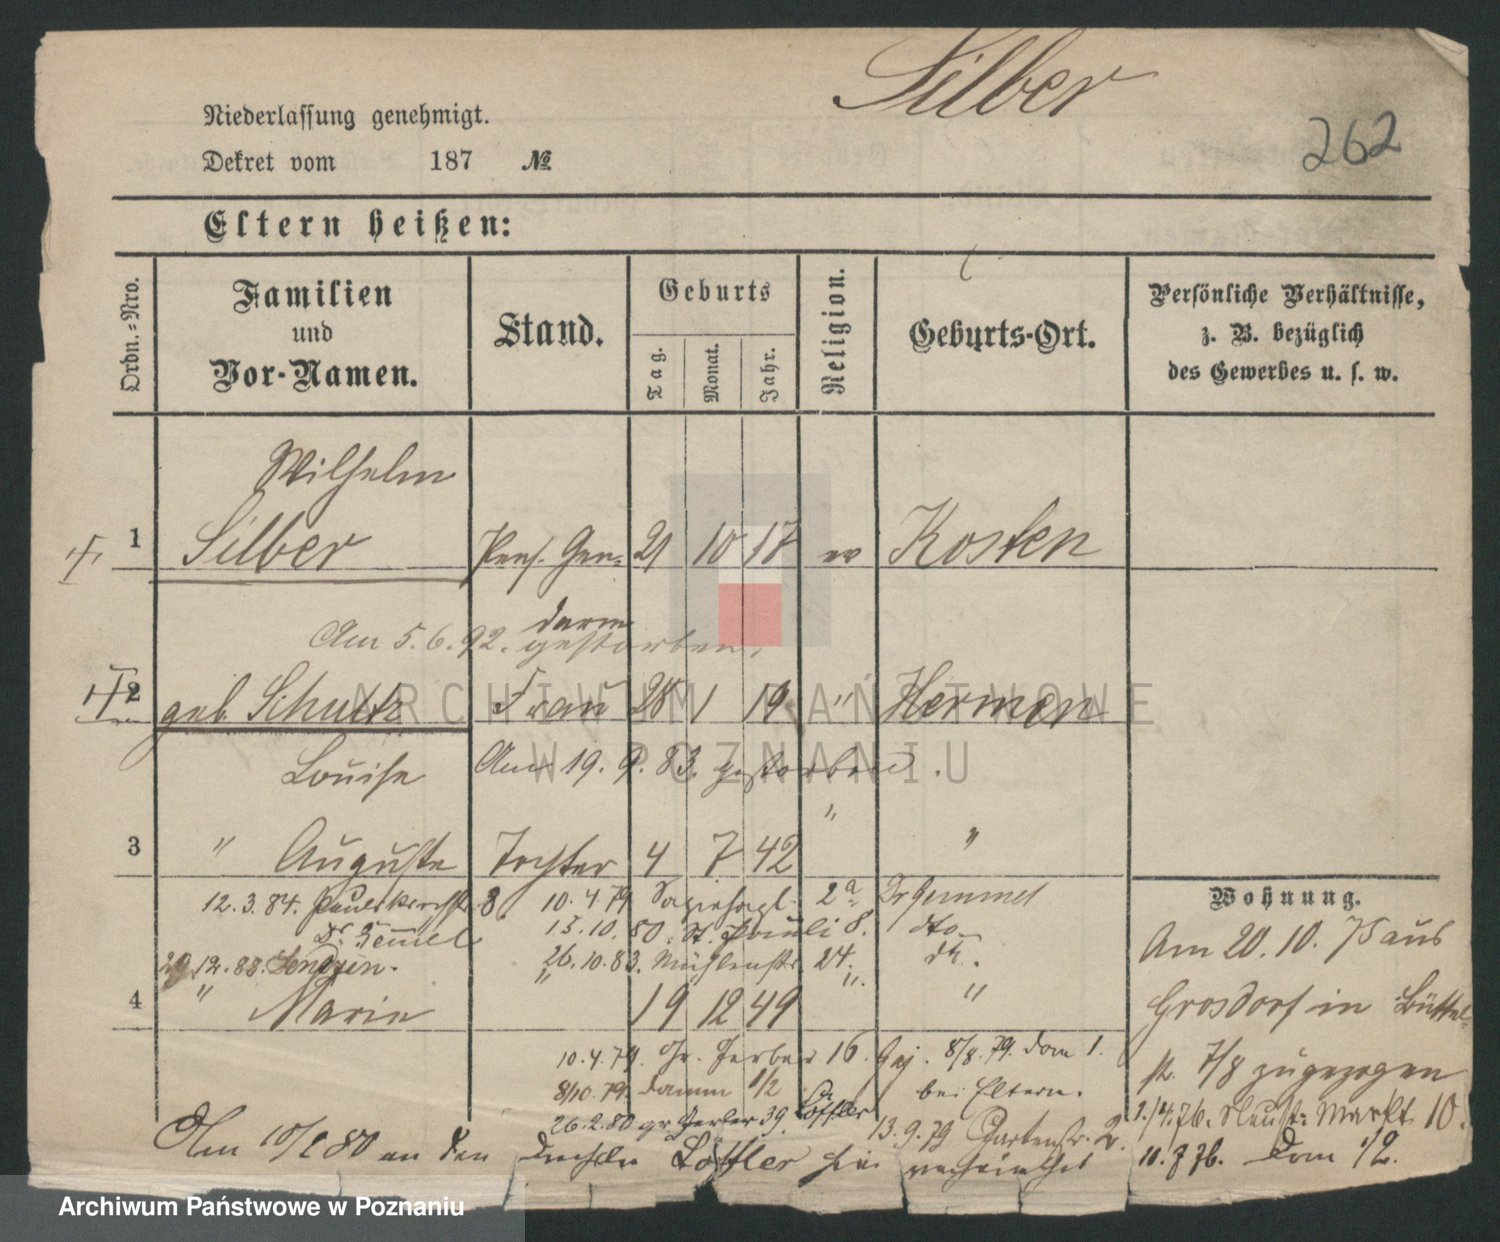 Silber
262
Niederlassung genehmigt.
Dekret vom 187 №
Eltern heißen:
Ordn.-Nro.
Familien
und
Vor-Namen.
Stand.
Geburts
Tag.
Monat.
Jahr.
Religion.
Geburts-Ort.
Persönliche Verhältnisse,
z. B. bezüglich
des Gewerbes u. s. w.
Wilhelm
1 Silber Pens. Gen= 21 10 17 ev Kosten
Am 5.6.92. gestorben.
2 geb Schultz Frau 28 1 19 " Hermen
Louise Am 19. 9. 83. gestorben.
"
3 " Auguste Tochter 4 7 42 "
12.3.84. Paulikirchstr 8 10.4.79 2a Dr Gemmel
15.10.80. St. Pauli 8. dto
29.12.88. 26.10.83. Mühlenstr. 24. do.
4 " Marie 19 12 49 " "
10.4.79. Gr. Gerber 16. 8/8.79. Dom 1.
8/10.79. Damm 1/2 bei Eltern.
26.2.80 gr. Gerber 39. Löffler 13.9.79 Gartenstr. 2.
Am 10/2 80 an den Löffler hier verheirathet
Wohnung.
Am 20.10.75 aus
Grosdorf in Büttel
str. 7/8 zugezogen
1./4.76. Markt 10.
10.7 76. Dom 1/2.
ARCHIWUM PAŃSTWOWE
W POZNANIU
Archiwum Państwowe w Poznaniu